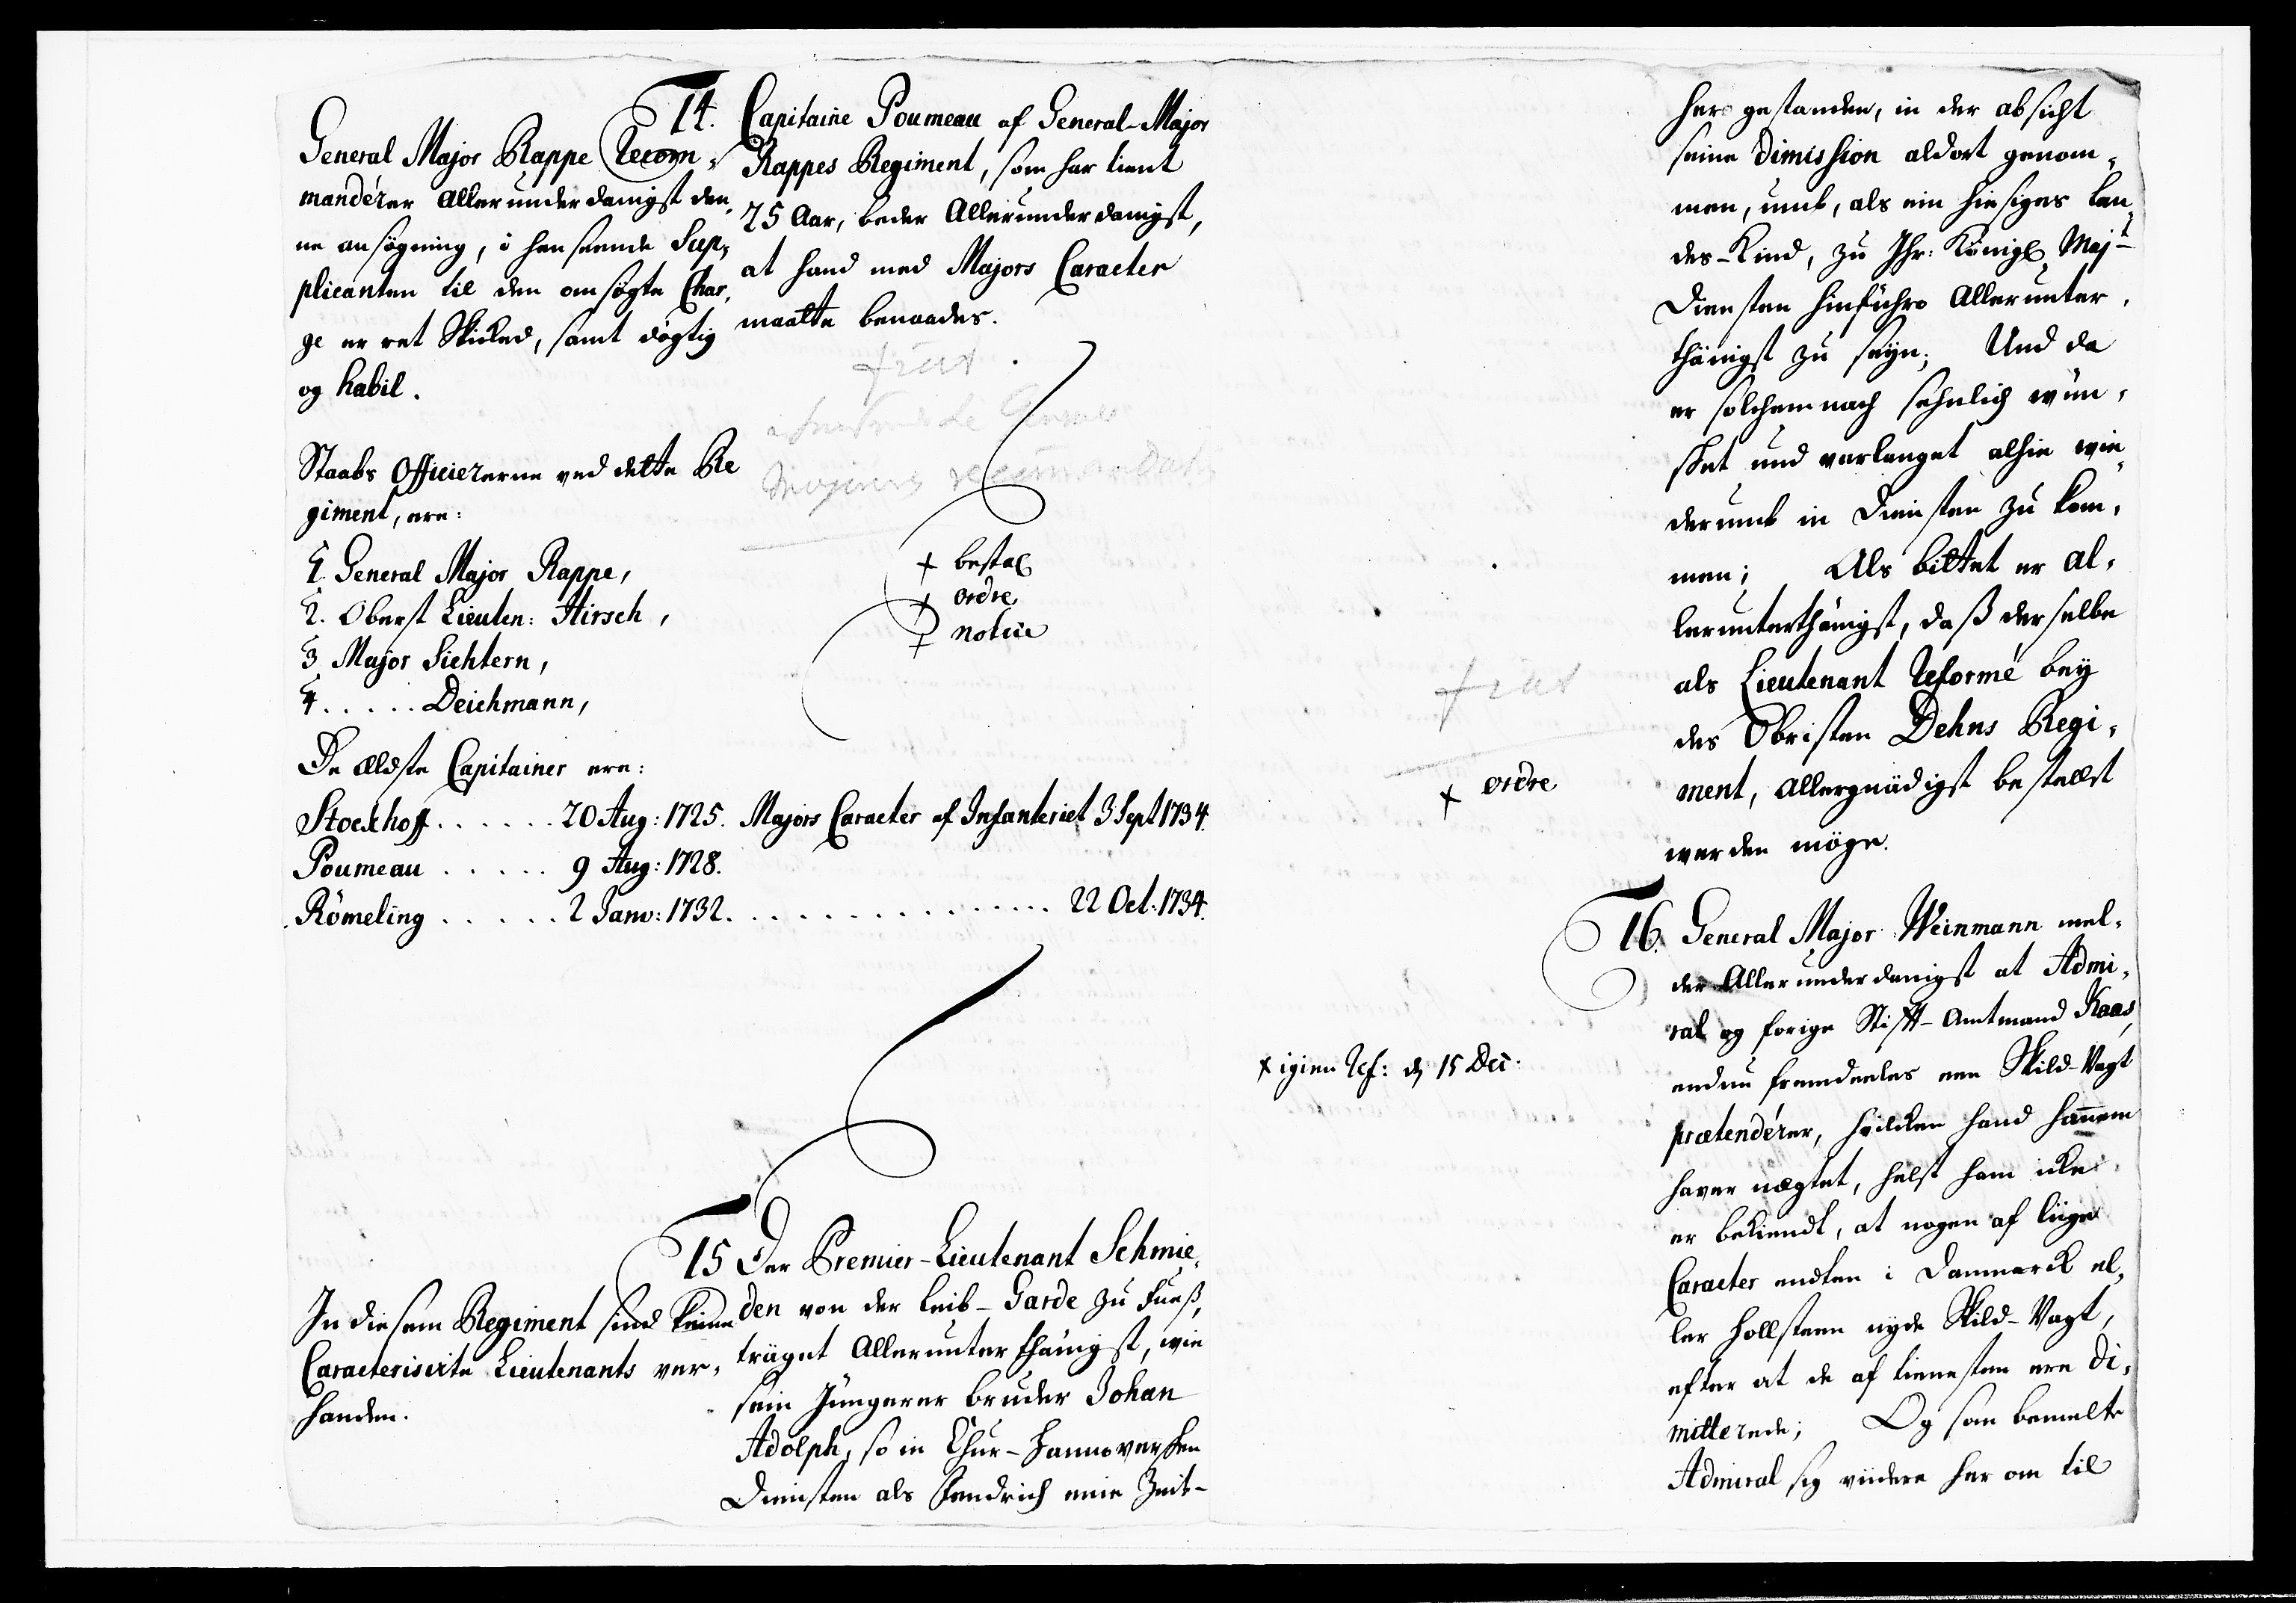 General Major Rappe Recom-
mandérer Allerunderdanigst den-
ne ansøgning, i henseende Sup-
plicanten til den ansøgte Char-
ge er ret skicked, samt døgtig
og habil.
Staabs Officiererne ved dette Re
giment, ere:
1. General Major Rappe,
2. Oberst Lieuten: Hirsch,
3 Major Sichtern,
4. . . . . Deichmann,
De ældste Capitainer ere:
Stockhoff . . . . . . 20 Aug: 1725. Majors Caracter af Infanteriet 3 Sept 1734.
Poumeau . . . . . 9 Aug: 1728.
Römeling . . . . . 2 Janv: 1732. . . . . . . . . . . . . . . . 22 Oct: 1734.
14. Capitaine Poumeau af General-Major
Rappes Regiment, som har tient
25 Aar, beder Allerunderdanigst,
at hand med Majors Caracter
maatte benaades.
fiat
Majorens recommendation
+ bestal
+ ordre
+ notice
In diesem Regiment sind keine
Caracterisirte Lieutenants ver-
handen.
15 Der Premier-Lieutenant Schmie-
den von der Leib-Garde zu Fueß,
träget Allerunterthänigst, wie
sein Jüngerer bruder Johan
Adolph, so in Chur-Hannoverschen
Diensten als Fendrich eine Zeit-
hero gestanden, in der absicht
seine Dimission aldort genom-
men, umb, als ein hiesiges Lan-
des-Kind, zu Ihr: Königl Majt
Diensten hinführo Allerunter-
thänigst zu seyn; Und da
er solchemnach sehnlich wün-
schet und verlanget alhie wie-
derumb in Diensten zu kom-
men; Als bittet er al-
lerunterthänigst, daß derselbe
als Lieutenant Reformé bey
des Obristen Dehns Regi-
ment, Allergnädigst bestellet
werden möge.
fiat
+ ordre
16. General Major Weinmann mel-
der Allerunderdanigst at Admi-
ral og forige Stift-Amtmand Kaas
endnu fremdeeles een Skild-Vagt
prætendérer, hvilken hand hannem
haver nægtet, helst ham icke
er bekiendt, at nogen af liige
Caracter endten i Danmarck el-
ler Hollsteen nyde Skild-Vagt,
efter at de af tienesten ere di-
mitterede; Og som bemelte
Admiral sig viidere her om til
+ igien Ref: d 15 Dec: